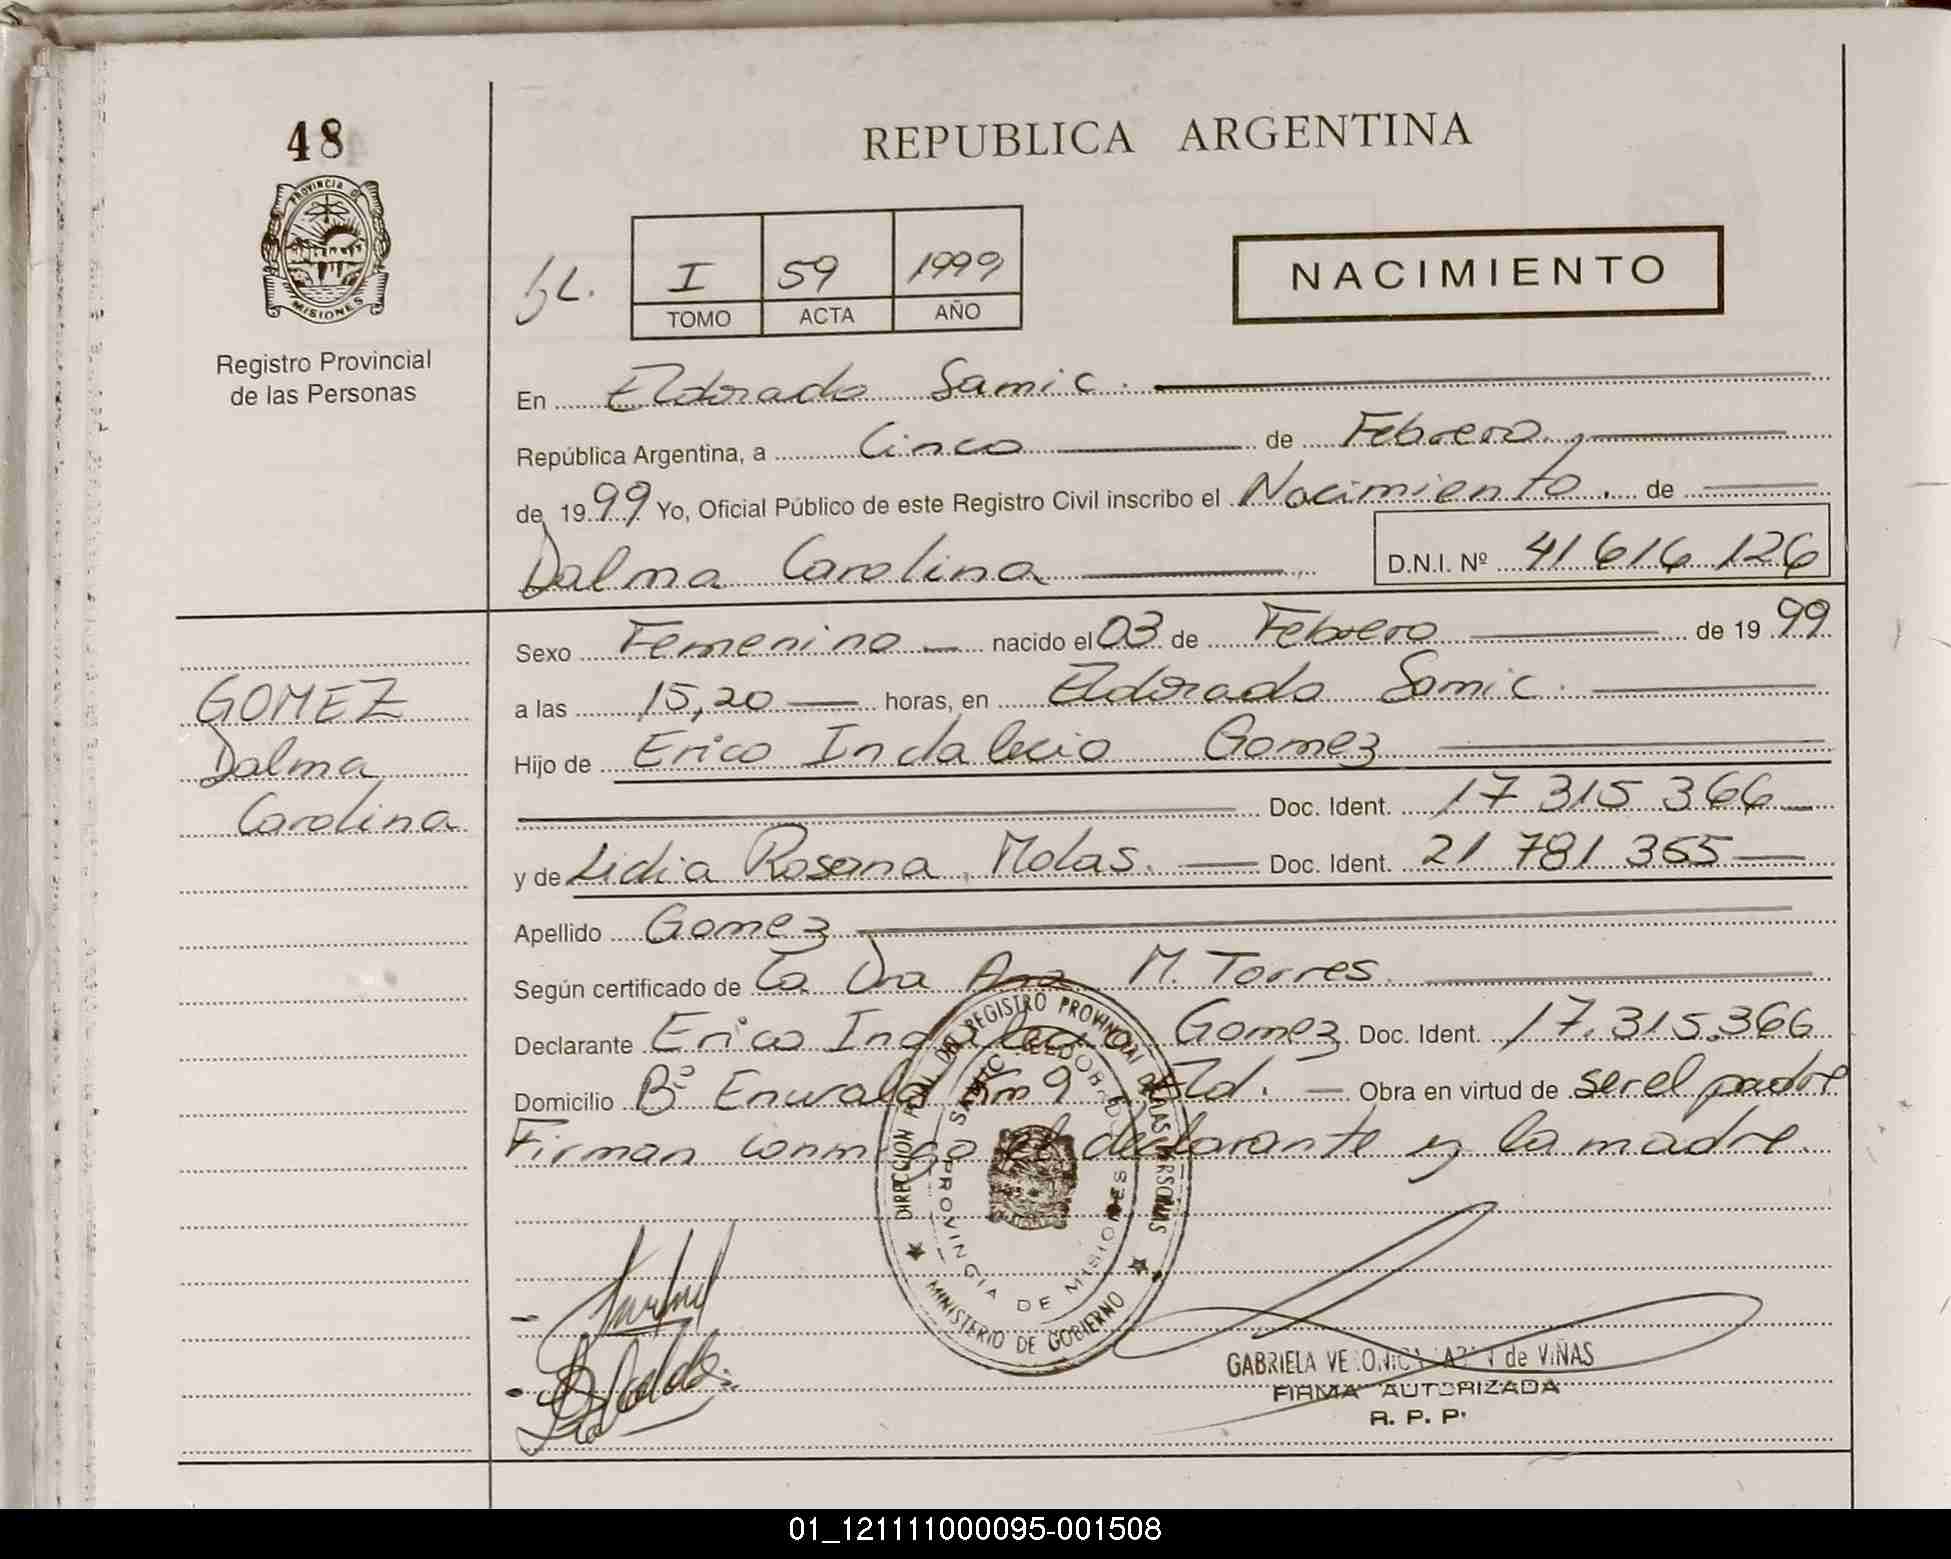 48
PROVINCIA DE
MISIONES
Registro Provincial
de las Personas
REPUBLICA ARGENTINA
I 59 1999
TOMO ACTA AÑO
NACIMIENTO
En Eldorado Samic.
República Argentina, a Cinco de Febrero,
de 1999 Yo, Oficial Público de este Registro Civil inscribo el Nacimiento. de
Dalma Carolina D.N.I. Nº 41 616 126
Sexo Femenino nacido el 03 de Febrero de 1999
a las 15,20 horas, en Eldorado Samic.
GOMEZ
Dalma
Carolina
Hijo de Erico Indalecio Gomez
Doc. Ident. 17 315 366
y de Lidia Rosana Molas. Doc. Ident. 21 781 365
Apellido Gomez
Según certificado de La Dra Ana M. Torres.
Declarante Erico Indalecio Gomez Doc. Ident. 17.315.366
Domicilio Bº Km 9 Eld. Obra en virtud de ser el padre
Firman conmigo el declarante y la madre.
DIRECCION PCIAL. DEL REGISTRO PROVINCIAL DE LAS PERSONAS
SAMIC ELDORADO
PROVINCIA DE MISIONES
MINISTERIO DE GOBIERNO
GABRIELA VERONICA de VIÑAS
FIRMA AUTORIZADA
R. P. P.
01_121111000095-001508